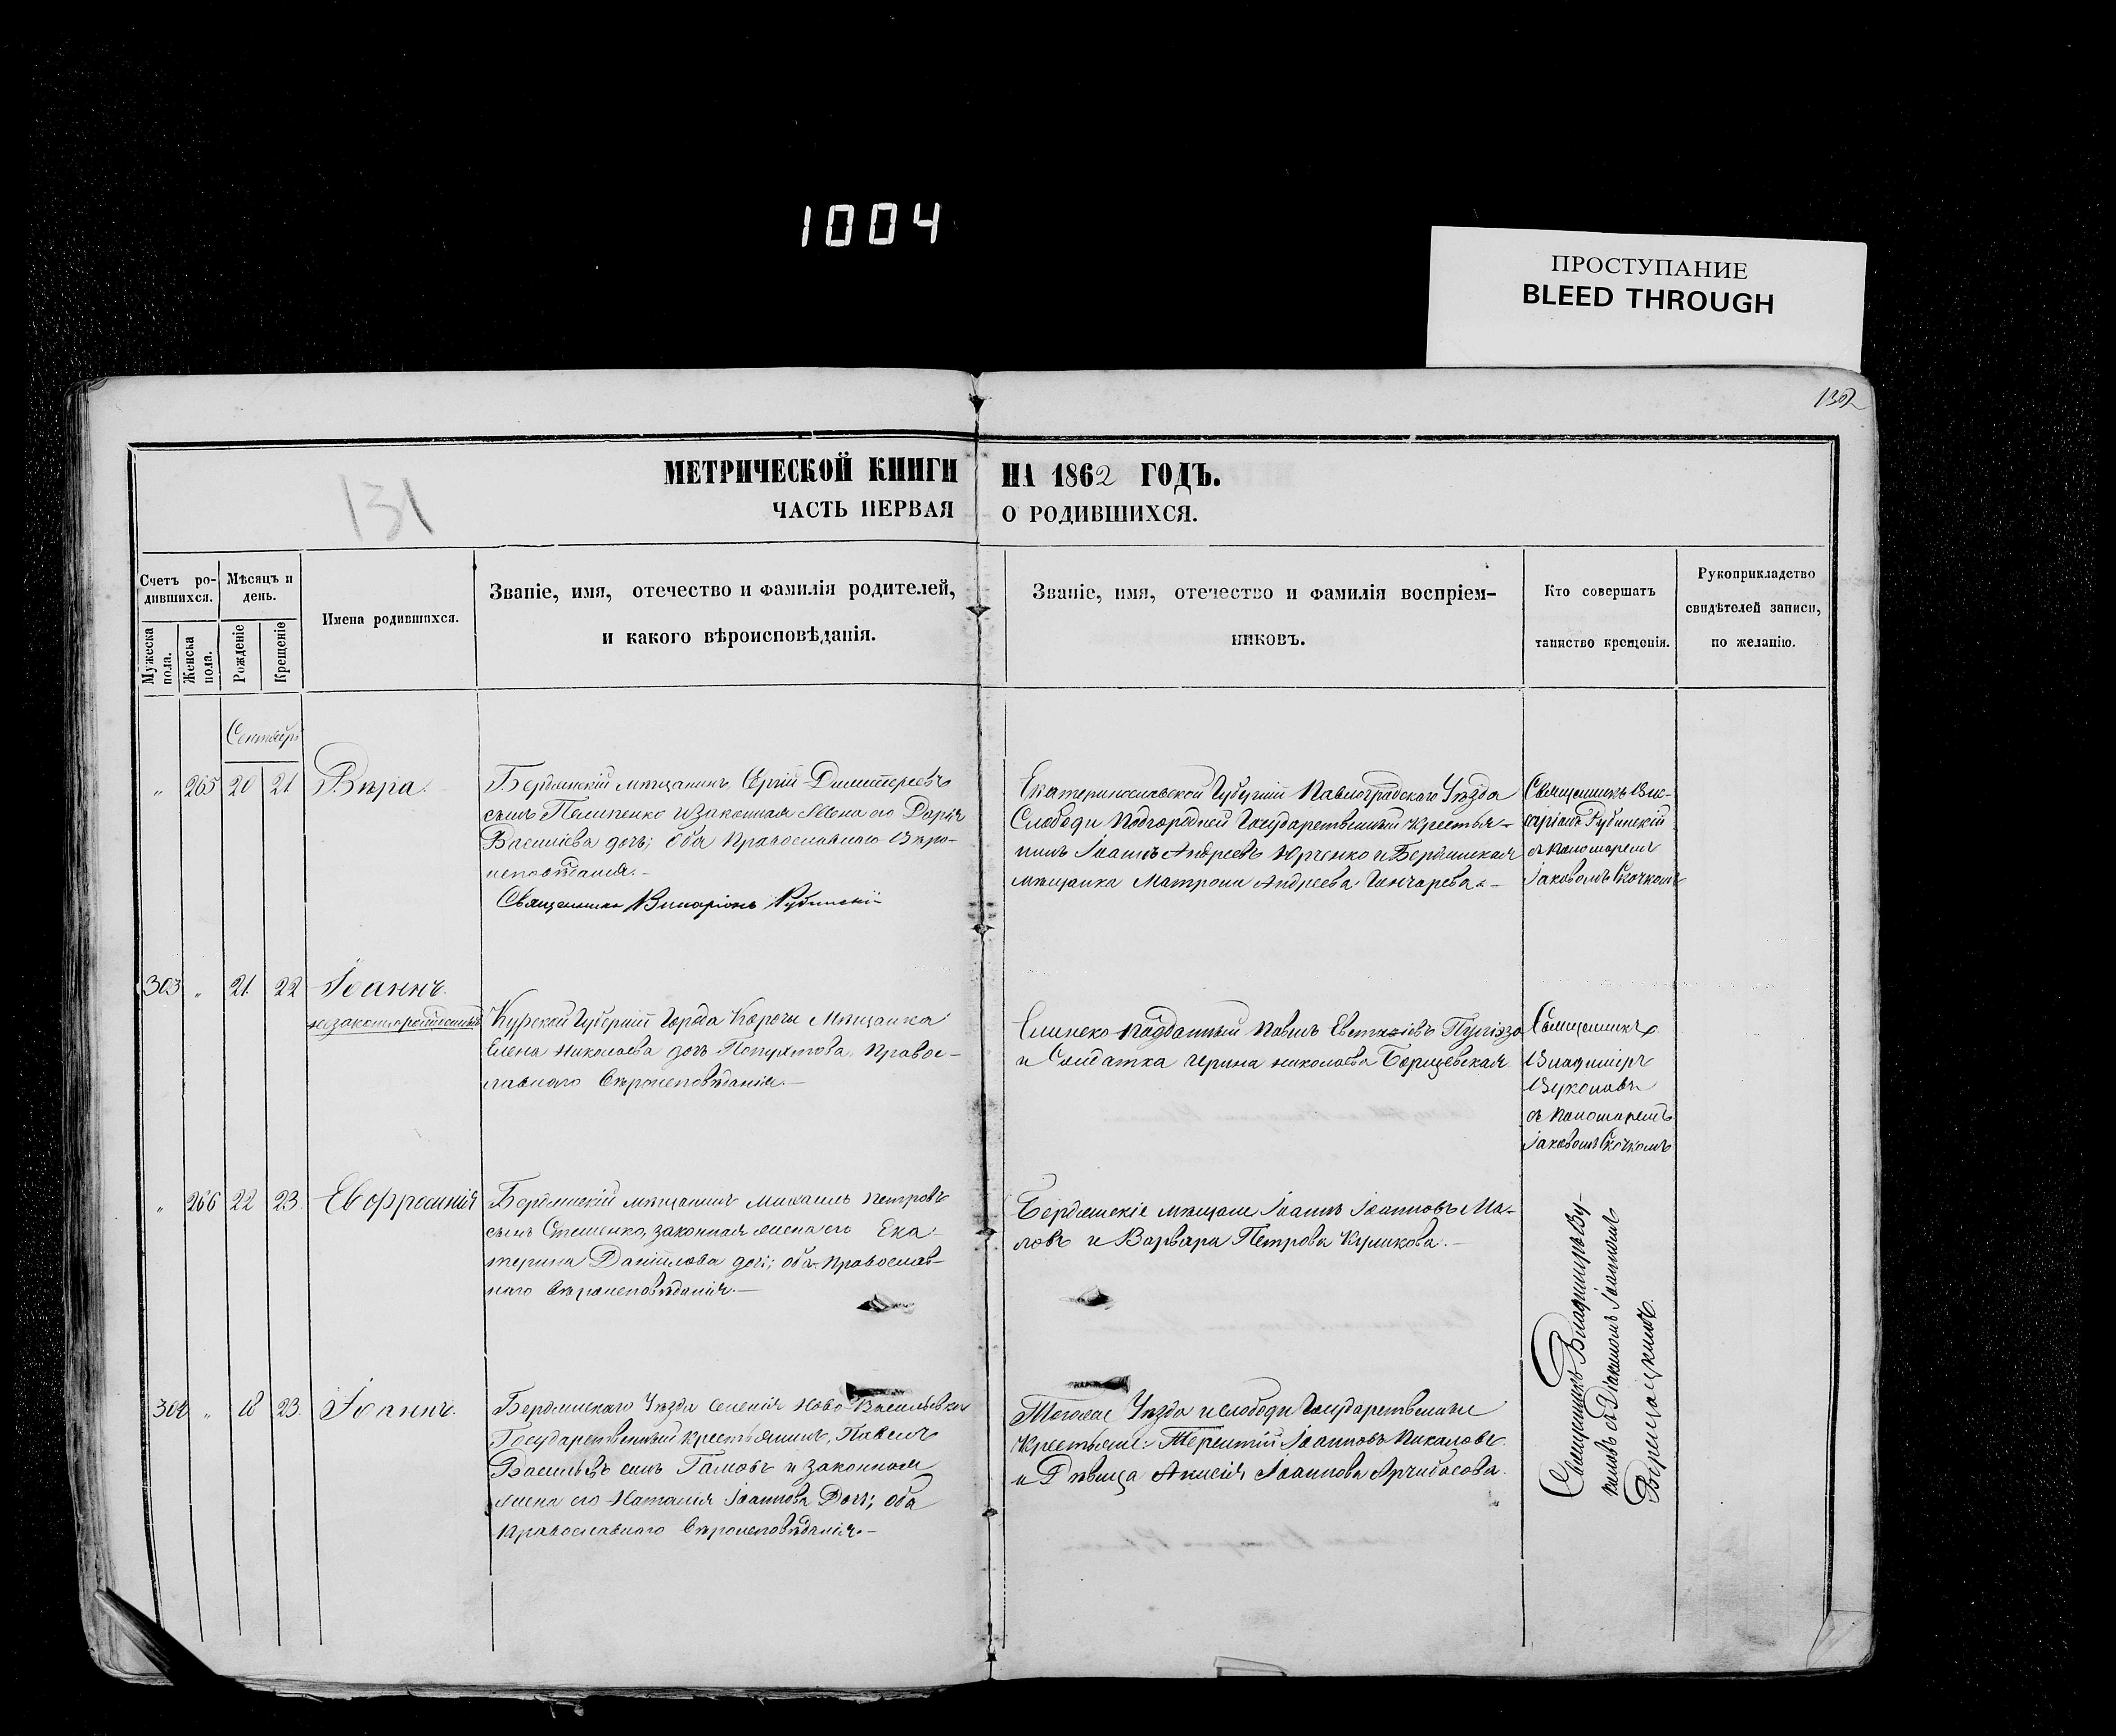 1004
ПРОСТУПАНИЕ
BLEED THROUGH
132
131
МЕТРИЧЕСКОЙ КНИГИ НА 1862 ГОДЪ.
ЧАСТЬ ПЕРВАЯ О РОДИВШИХСЯ.
Счетъ ро-
дившихся.
Мѣсяцъ и
день.
Мужеска
пола.
Женска
пола.
Рожденіе
Крещеніе
Имена родившихся.
Званіе, имя, отечество и фамилія родителей,
и какого вѣроисповѣданія.
Званіе, имя, отечество и фамилія воспріем-
никовъ.
Кто совершатъ
таинство крещенія.
Рукоприкладство
свидѣтелей записи,
по желанію.
Сентябрь
" 265 20 21 Вѣра.
Бердянскій мѣщанинъ Сергій Димитреевъ
сынъ Пелипенко и законная жена его Дарія
Василіева дочь; оба православнаго вѣро-
исповѣданія.-
Священникъ Иларіонъ
Екатеринославской Губерніи Павлоградскаго Уѣзда
Слободы Подгородней Государственный крестья-
нинъ Іоаннъ Андреевъ Юрченко и Бердянская
мѣщанка Матрона Андреева Гончарева.-
Священникъ
съ пономаремъ
Іаковомъ Скочкомъ
303 " 21 22 Іоаннъ.
незаконнорожденный
Курской Губерніи Города Корочи Мѣщанка
Елена Николаева дочь православ-
наго вѣроисповѣданія.-
Павелъ
и Солдатка Ирина Николаева Борщевская
Священникъ
Владиміръ
Вуколовъ
съ пономаремъ
Іаковомъ Скочкомъ
" 266 22 23 Евфросинія
Бердянскій мѣщанинъ Михаилъ Петровъ
сынъ Стешенко, законная жена его Ека-
терина Даніилова дочь; оба православ-
наго вѣроисповѣданія.-
Бердянскіе мѣщане Іоаннъ Іоанновъ Ма-
ловъ и Варвара Петрова Куликова.-
Священникъ Владиміръ Ву-
коловъ съ Діакономъ Іоанномъ
304 " 18 23 Іоаннъ.
Бердянскаго Уѣзда селенія Ново Васильевки
Государственный крестьянинъ, Павелъ
Васильевъ сынъ Гамовъ и законная
жена его Наталія Іоаннова дочь; оба
православнаго вѣроисповѣданія.-
Тогоже Уѣзда и слободы Государственные
крестьяне: Терентій Іоанновъ Пикаловъ
и Дѣвица Анисія Іоаннова Арчибасова.